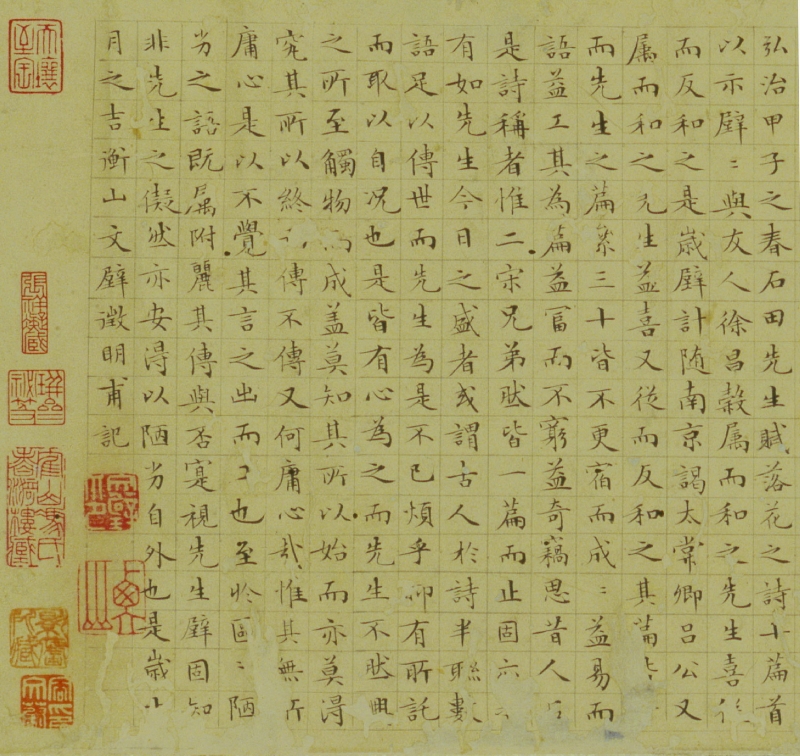 弘治甲子之春石田先生賦落花之詩十篇首
以示璧璧與友人徐昌榖属而和之先生喜従
而反和之是歳璧計随南京謁太常卿吕公又
属而和之先生益喜又從而反和之其篇
而先生之篇累三十皆不更宿而成成益易而
語益工其為篇益富而不窮益奇竊思昔人
是詩稱者惟二宋兄弟然皆一篇而止固六
有如先生今日之盛者或謂古人於詩半聯數
語足以傳世而先生為是不已煩乎抑有所託
而取以自况也是皆有心為之而先生不然興
之所至觸物而成盖莫知其所以始而亦莫得
究其所以終傳不傳又何庸心哉惟其無所
庸心是以不覺其言之出而工也至於區區陋
劣之語既属附麗其傳與否寔視先生璧固知
非先生之儗然亦安得以陋劣自外也是歳十
月之吉衡山文璧徵明甫記